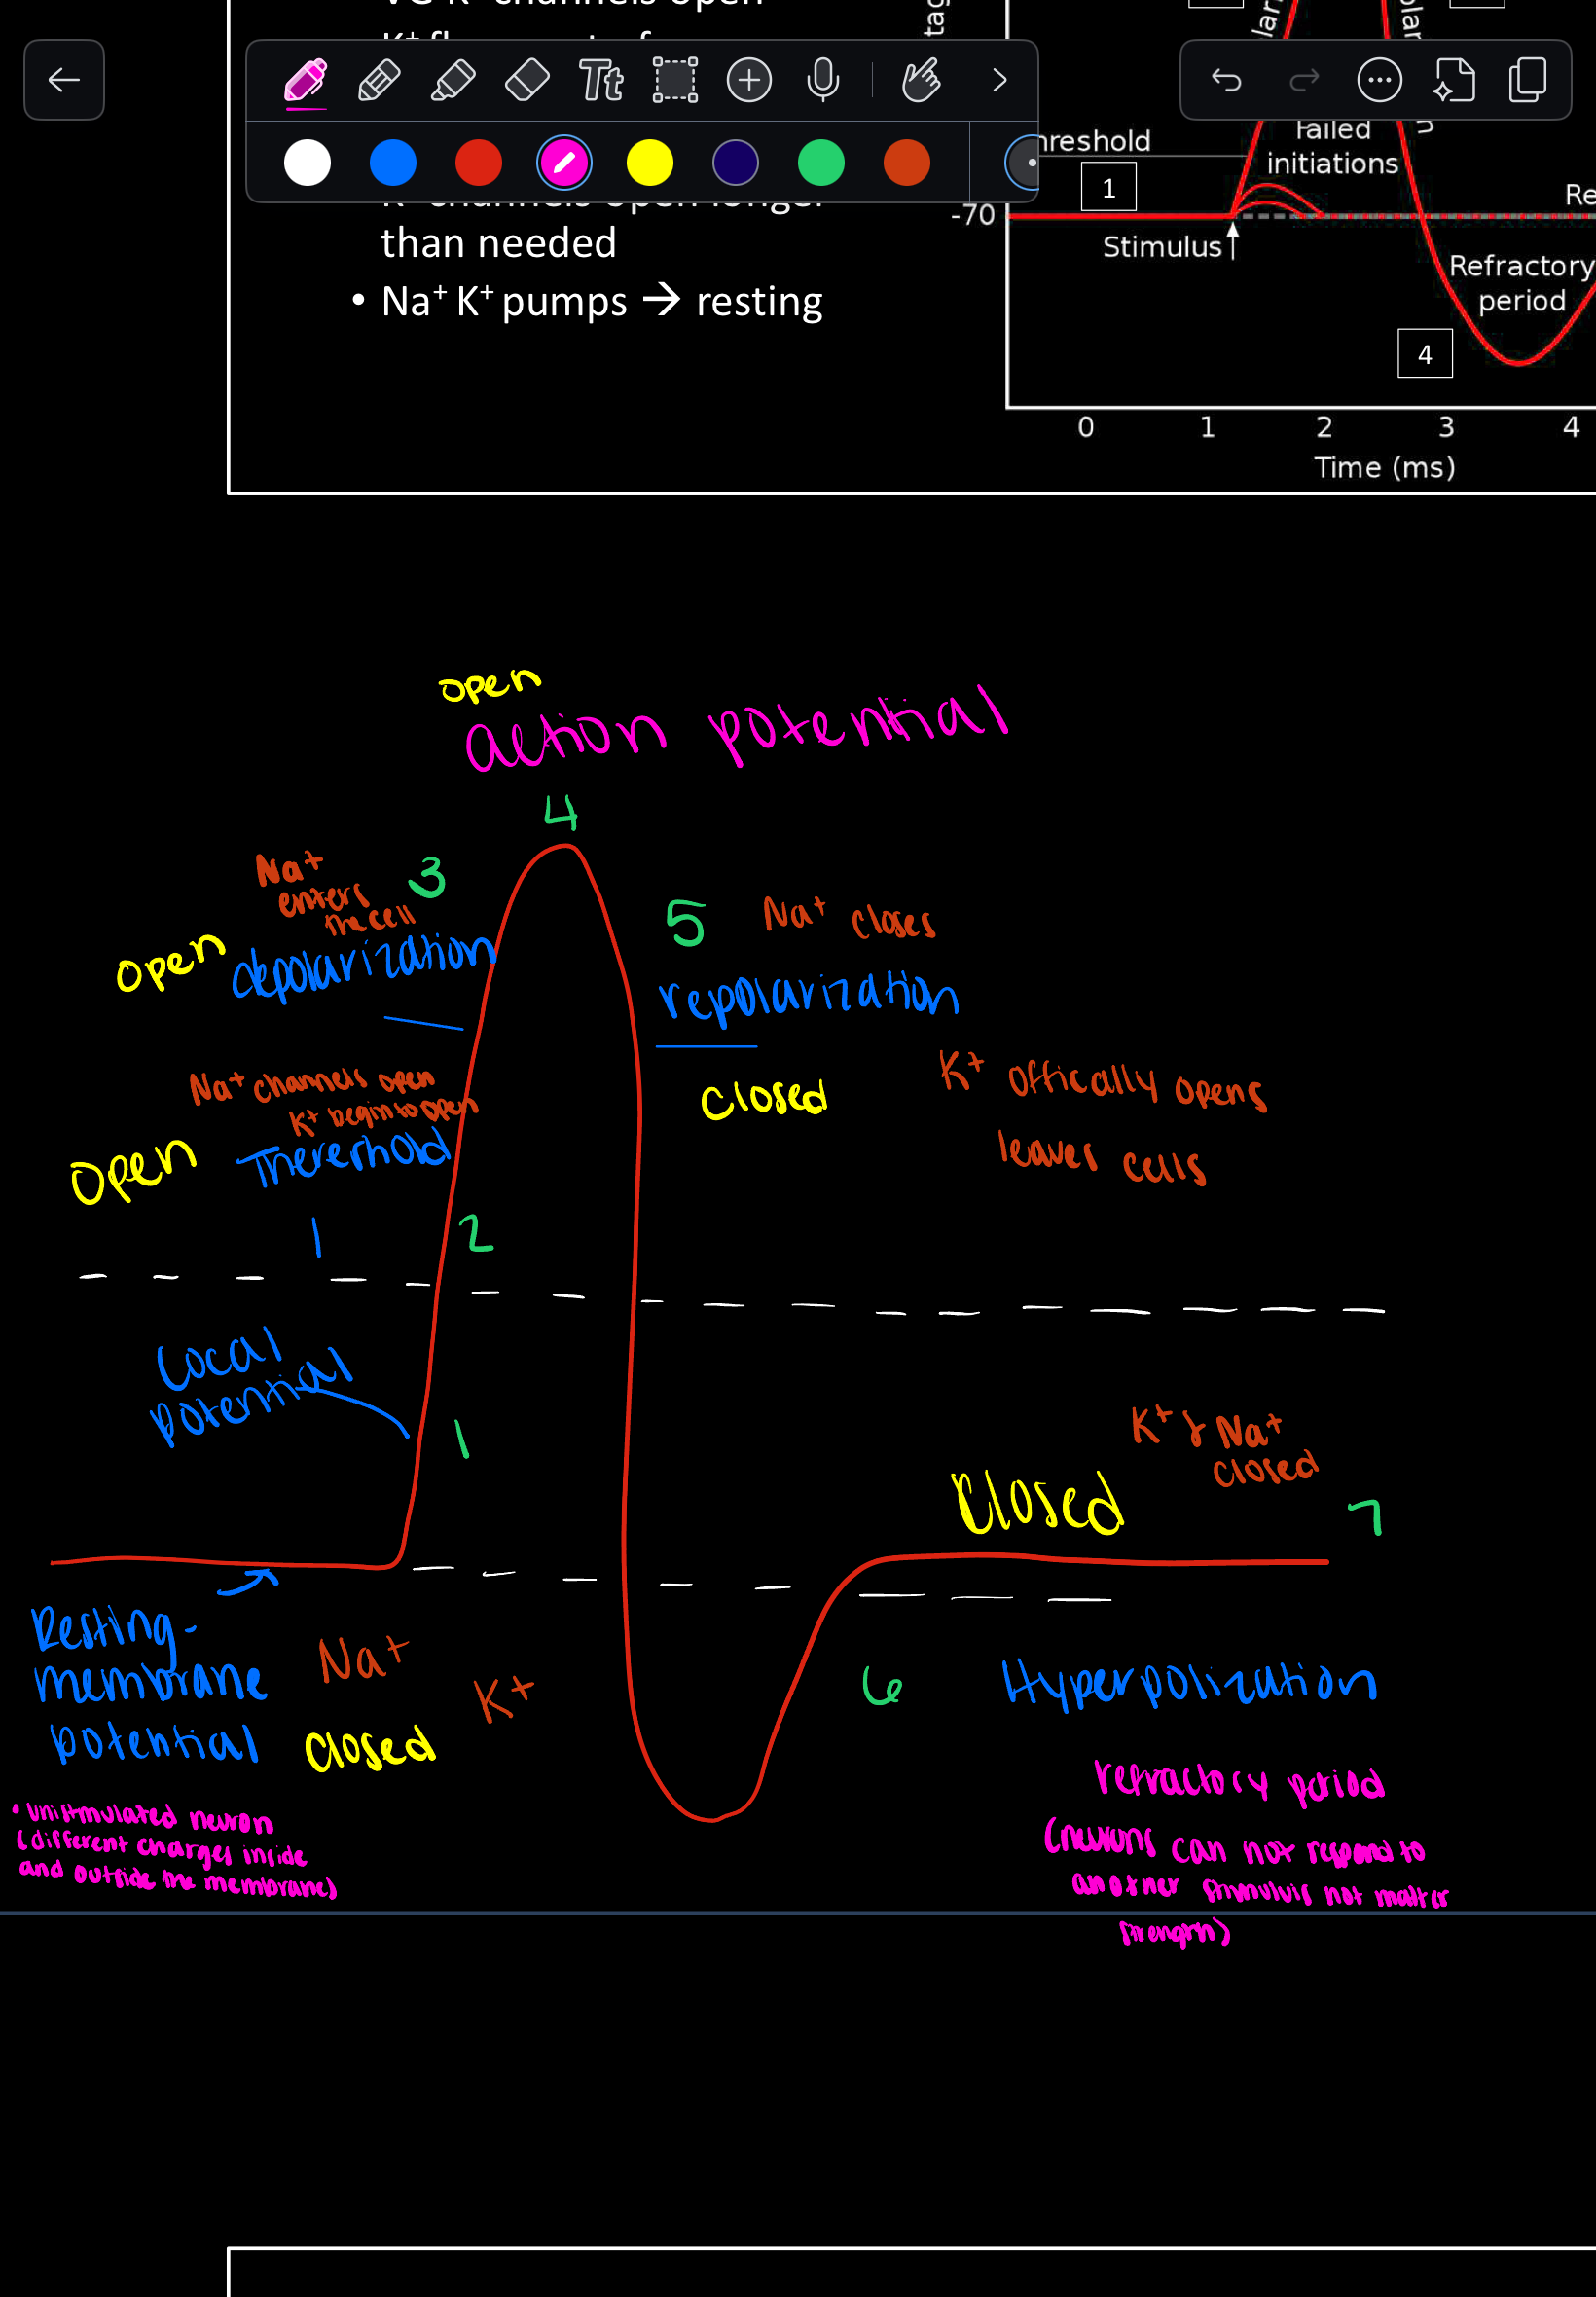 than needed
• Na⁺ K⁺ pumps → resting
hreshold
1
-70
Stimulus
Failed
initiations
Re
Refractory
period
4
0 1 2 3 4
Time (ms)
Tt
open
action potential
4
Na⁺
enters
the cell
3
open
depolarization
5
Na⁺ closes
repolarization
closed
K⁺ offically opens
leaves cells
Na⁺ channels open
K⁺ begin to open
Open
Thererhold
2
Local
potential
1
K⁺ & Na⁺
closed
Closed
7
Resting-
membrane
potential
Na⁺
K⁺
closed
6
Hyperpolization
refractory period
(neurons can not respond to
another stimulus not matter
strength)
• unistmulated neuron
(different charges inside
and outside the membrane)